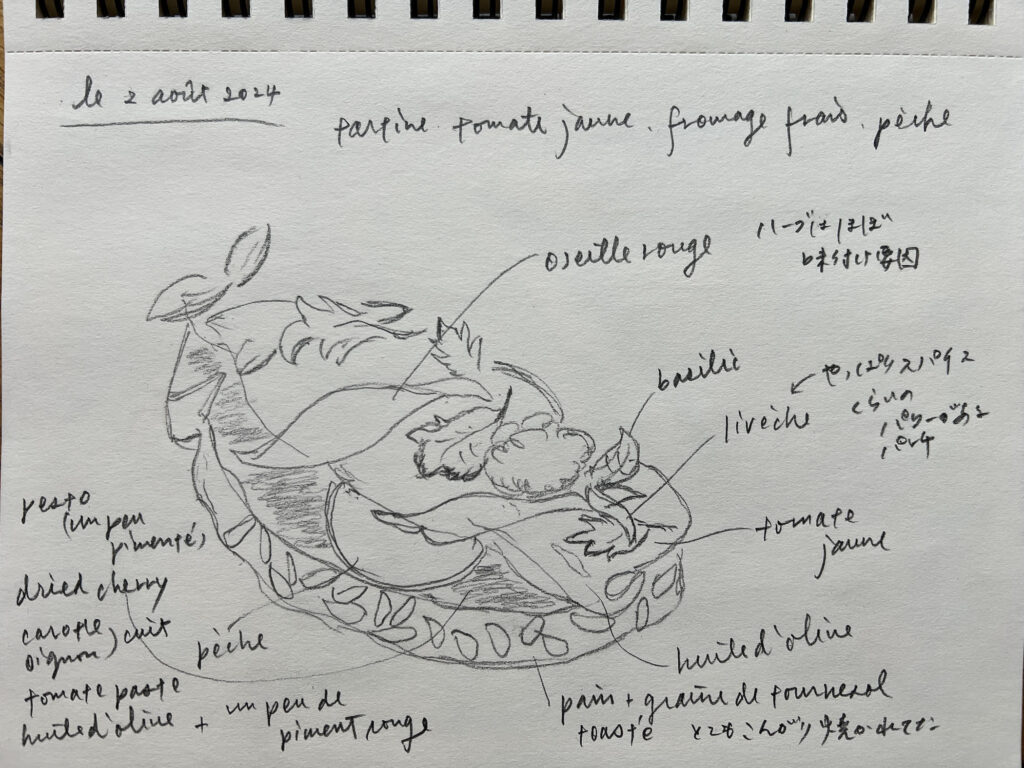 le 2 août 2024
tartine. tomate jaune. fromage frais. pêche
oseille rouge
ハーブはほぼ
味付け要因
basilic
livèche
くらいの
tomate
jaune
pesto
(un peu
pimenté)
dried cherry
carotte, cuit
oignon
tomate paste
huile d'olive + un peu de
piment rouge
pèche
huile d'olive
pain + graine de tournesol
toasté とてもこんがり焼かれてた